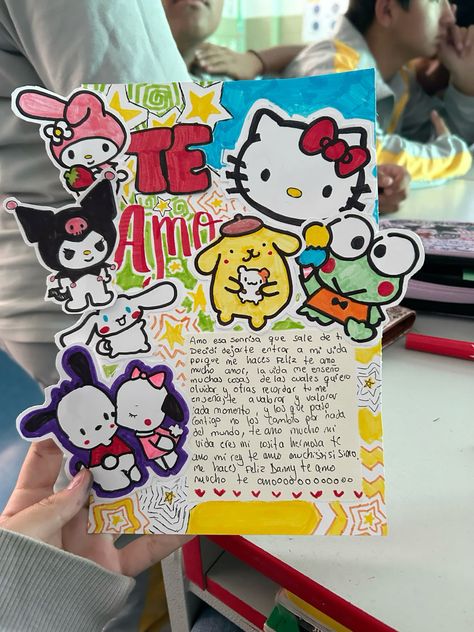 TE
AMO
Amo esa sonrisa que sale de ti
Decidi dejarte entrar a mi vida
porque me haces Feliz te amo
mucho amor, la vida me enseño
muchas cosas de las cuales quiero
olvidar y otras recordar tu me
enseñaste a valorar y valorar
cada momento, y los que paso
contigo no los cambio por nada
del mundo, te amo mucho mi
vida eres mi cosita hermosa te
amo mi rey te amo muchisisisisimo,
me haces Feliz Danny te amo
mucho te amooooooooooo